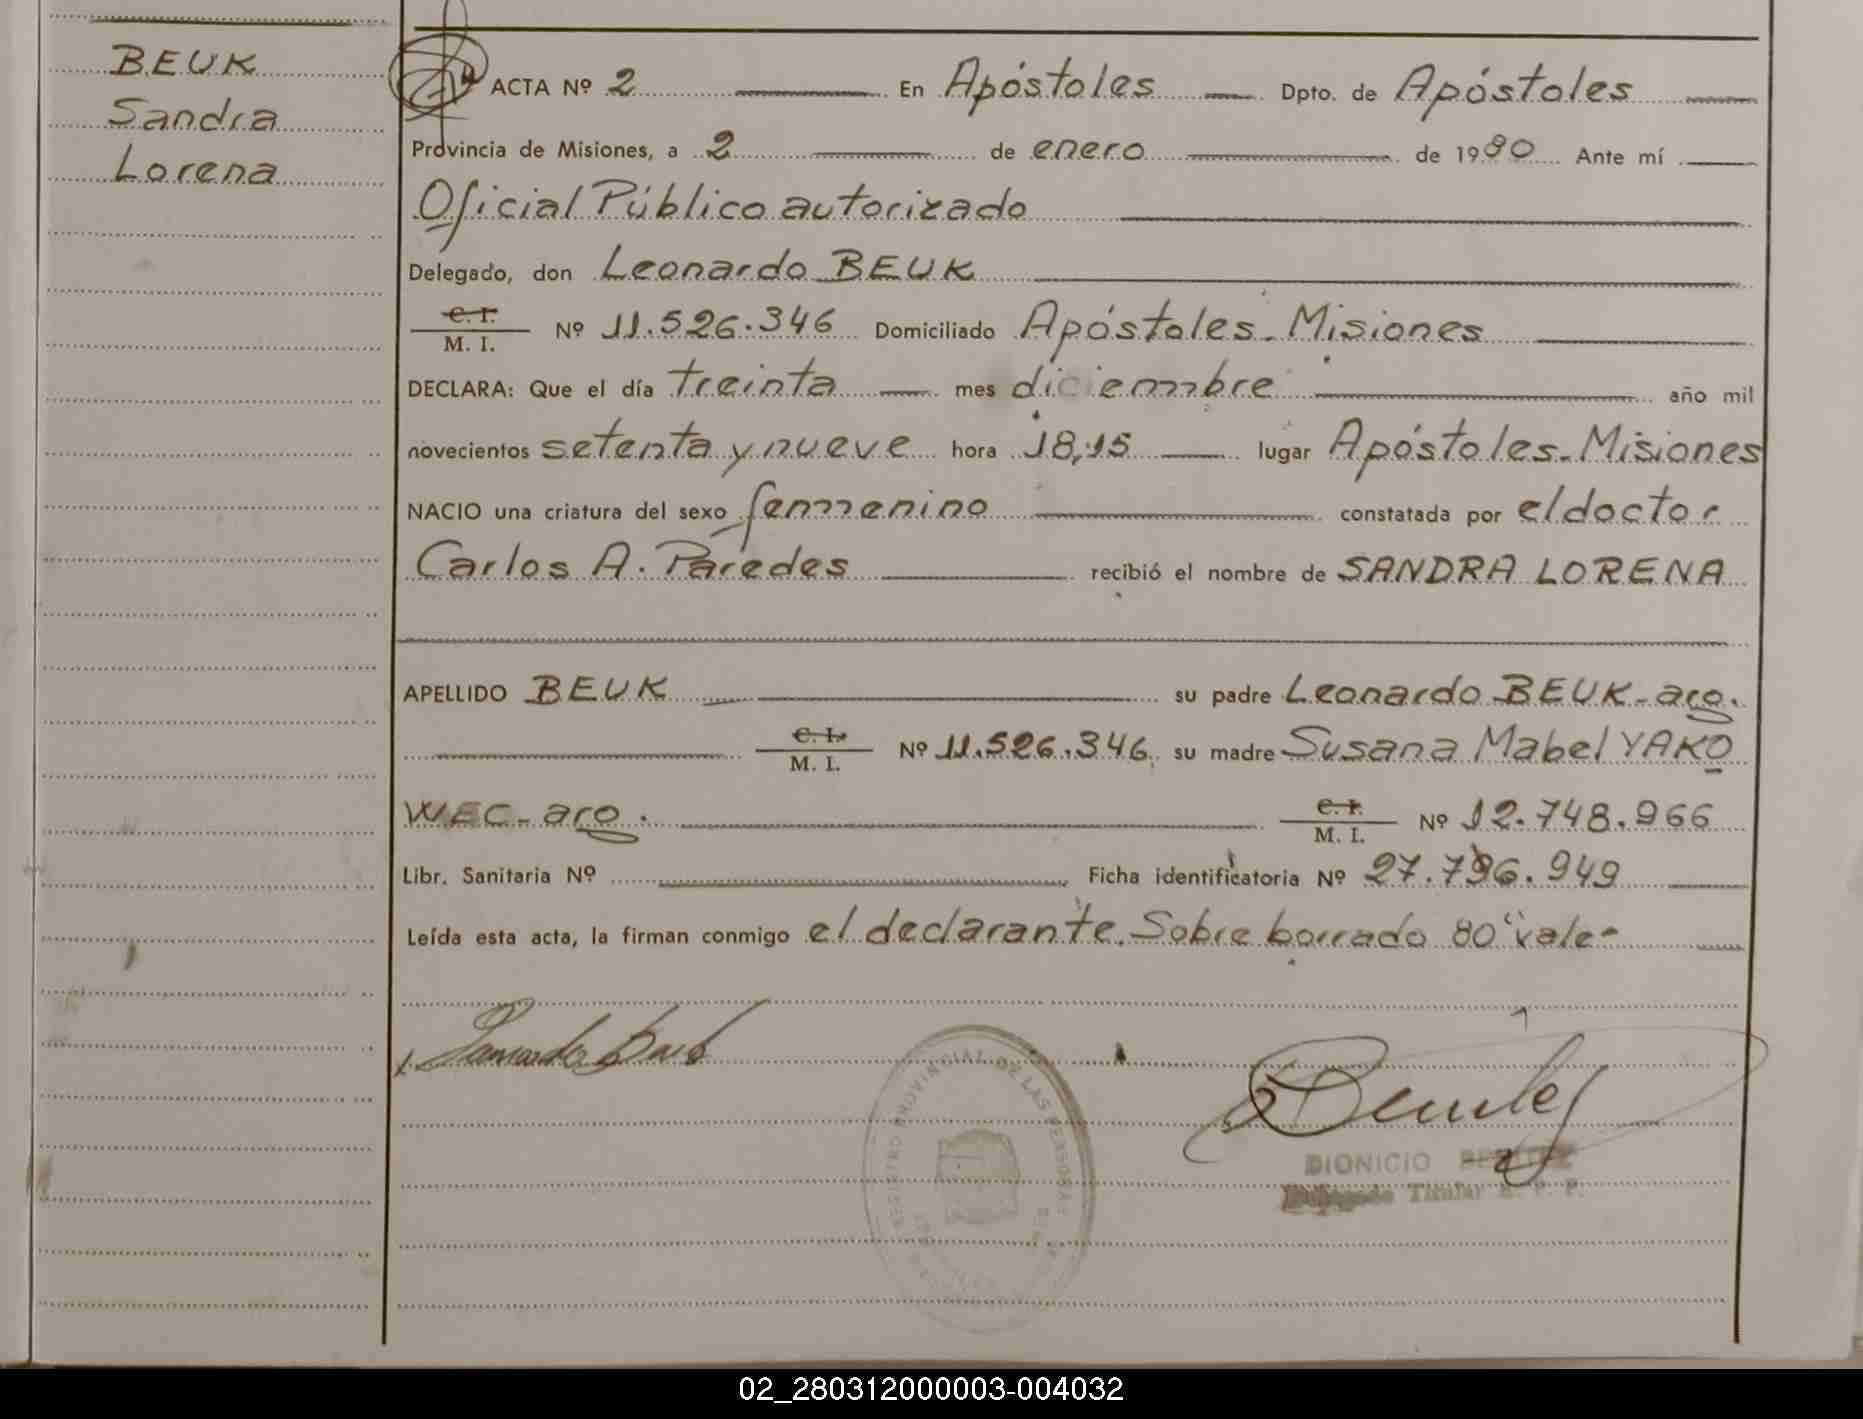 BEUK
Sandra
Lorena
ACTA Nº 2 En Apóstoles Dpto. de Apóstoles
Provincia de Misiones, a 2 de enero de 1980 Ante mí
Oficial Público autorizado
Delegado, don Leonardo BEUK
C. I.
M. I. Nº 11.526.346 Domiciliado Apóstoles - Misiones
DECLARA: Que el día treinta mes diciembre año mil
novecientos setenta y nueve hora 18,15 lugar Apóstoles - Misiones
NACIO una criatura del sexo femenino constatada por el doctor
Carlos A. Paredes recibió el nombre de SANDRA LORENA
APELLIDO BEUK su padre Leonardo BEUK - arg.
C. I.
M. I. Nº 11.526.346, su madre Susana Mabel YAKO
WEC - arg.
C. I.
M. I. Nº 12.748.966
Libr. Sanitaria Nº Ficha identificatoria Nº 27.796.949
Leída esta acta, la firman conmigo el declarante. Sobre borrado 80 "vale-
REGISTRO PROVINCIAL DE LAS PERSONAS
DIONICIO
Titular R. P. P.
02_280312000003-004032